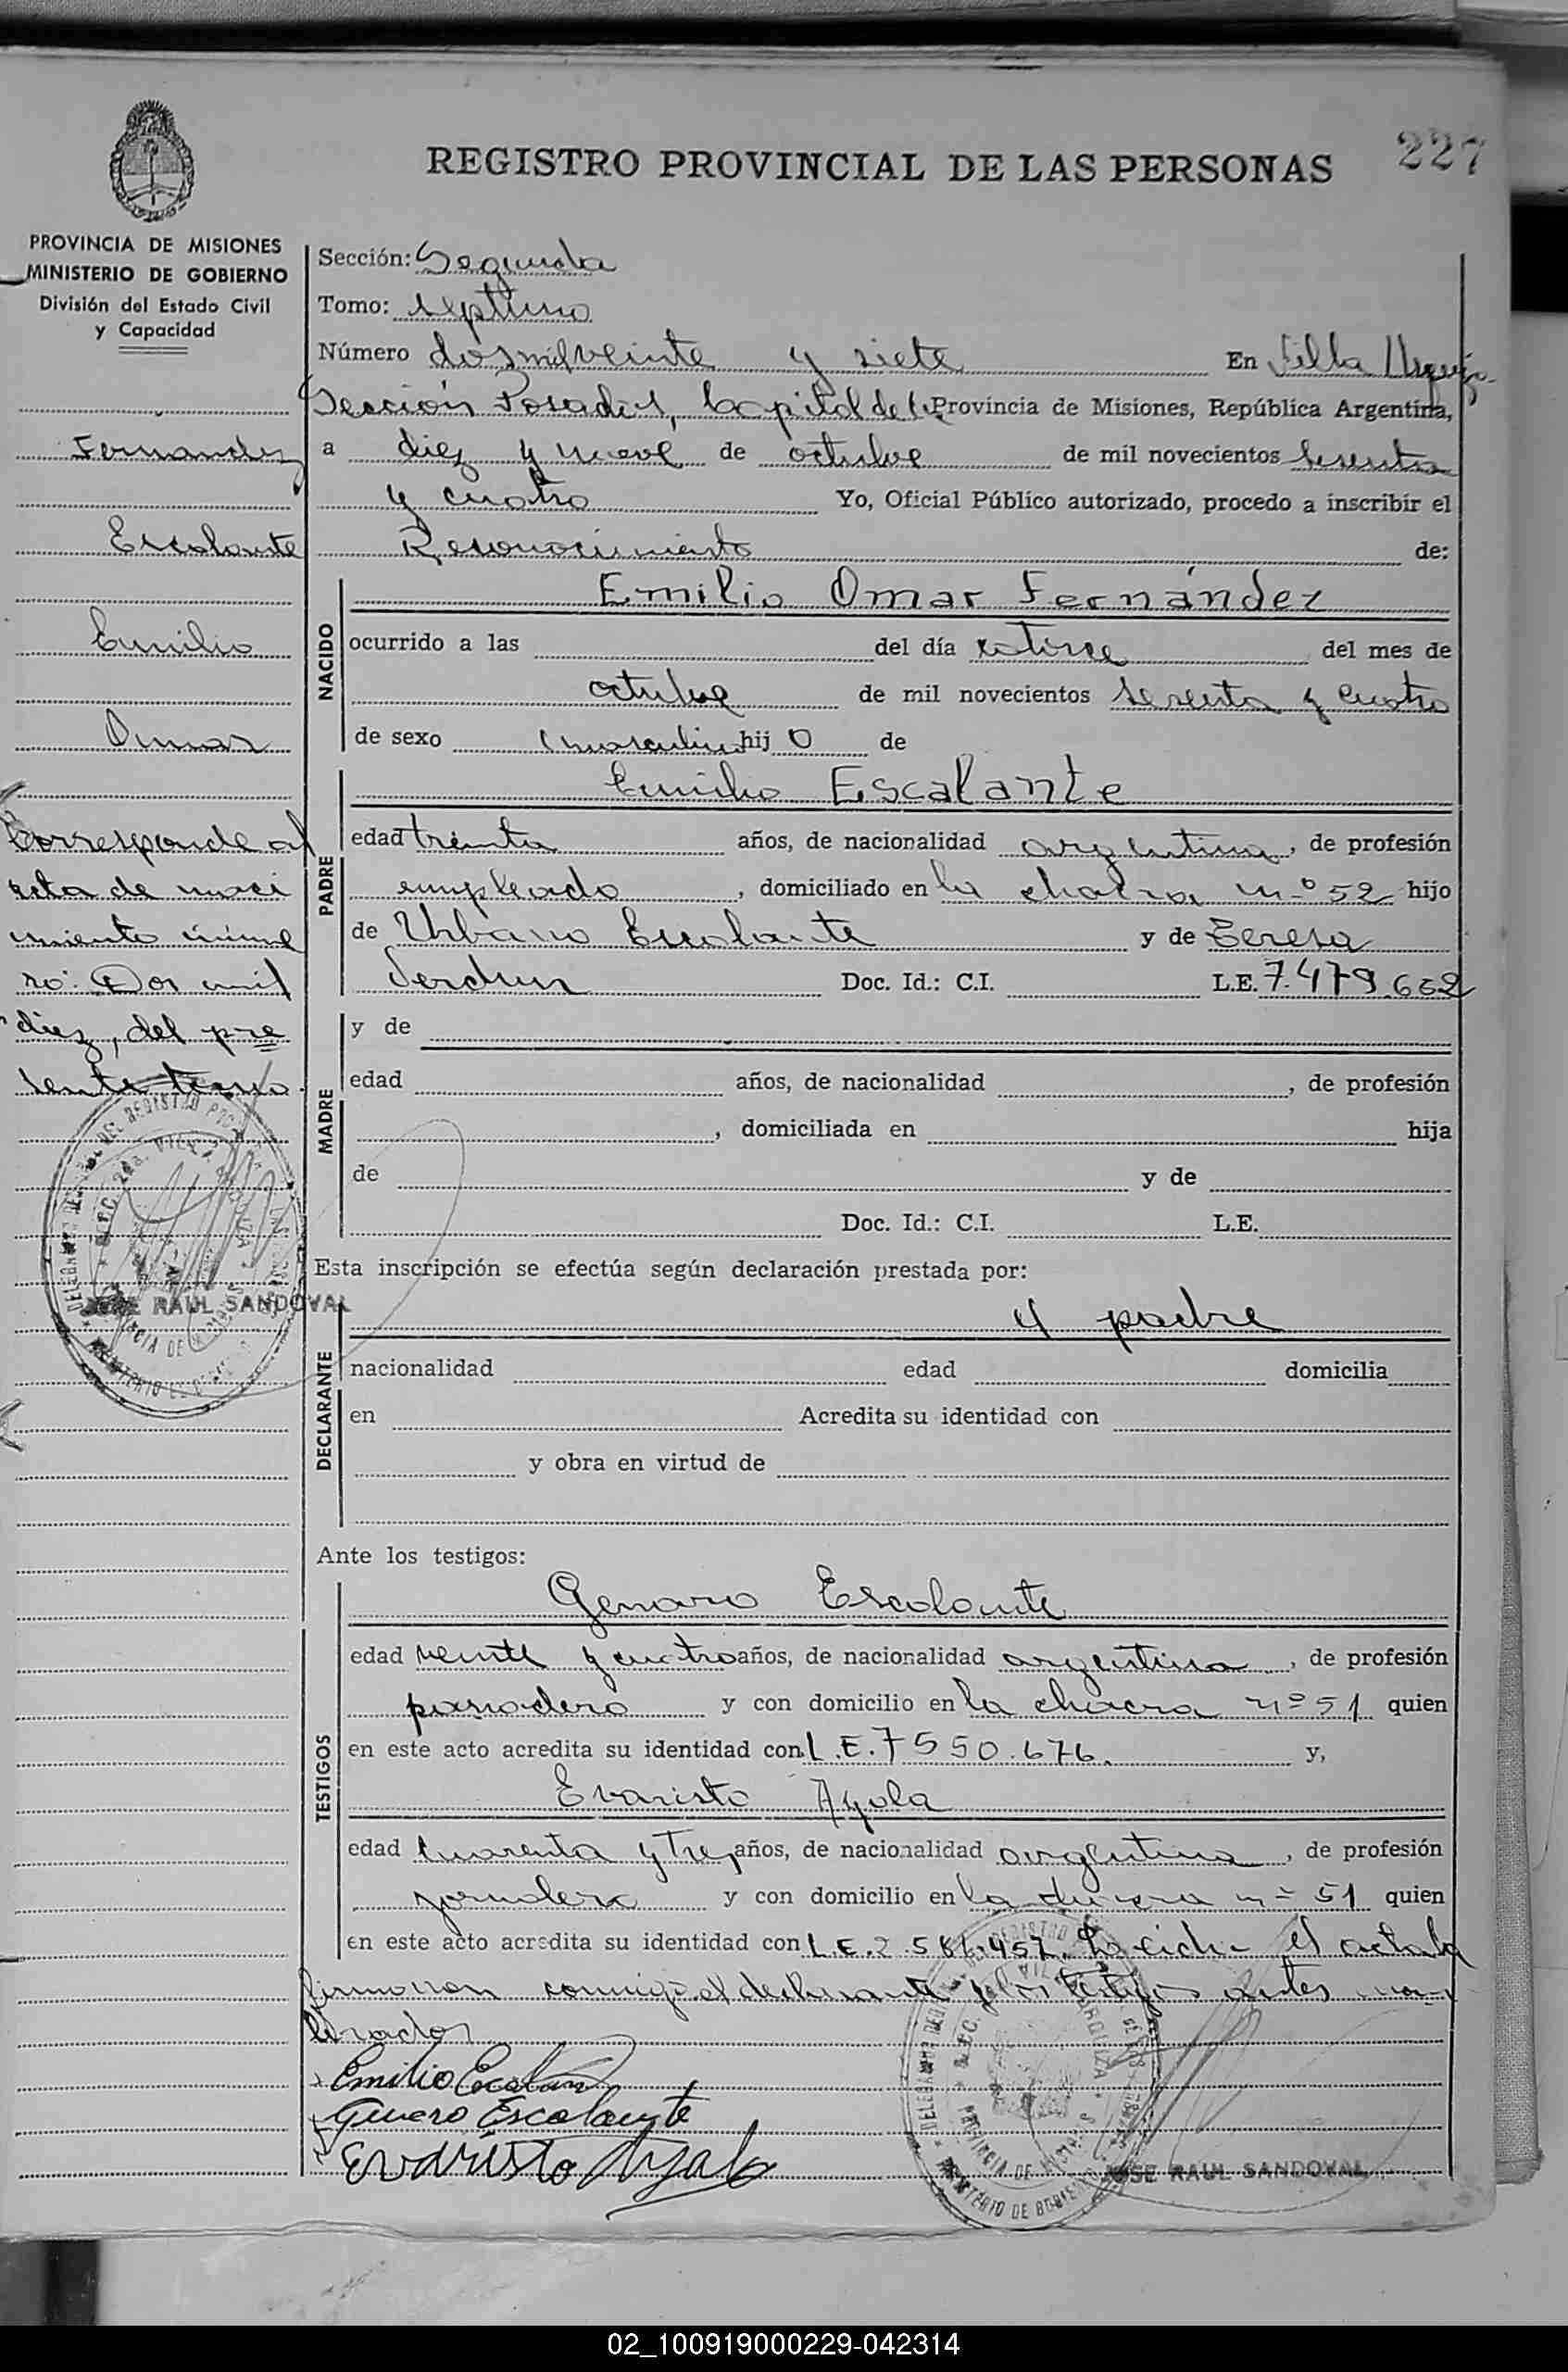 REGISTRO PROVINCIAL DE LAS PERSONAS
227
PROVINCIA DE MISIONES
MINISTERIO DE GOBIERNO
División del Estado Civil
y Capacidad
Fernandez
Escalante
Emilio
Omar
Corresponde al
acta de naci
miento núme
ro: Dos mil
diez, del pre
sente tomo.
JOSE RAUL SANDOVAL
Sección: Segunda
Tomo: septimo
Número dosmilveinte y siete En Villa Urquiza
Sección Posadas, Capital de la Provincia de Misiones, República Argentina,
a diez y nueve de octubre de mil novecientos sesenta
y cuatro Yo, Oficial Público autorizado, procedo a inscribir el
Reconocimiento de:
NACIDO
Emilio Omar Fernández
ocurrido a las del día catorce del mes de
octubre de mil novecientos sesenta y cuatro
de sexo masculino hijo de
PADRE
Emilio Escalante
edad treinta años, de nacionalidad argentina, de profesión
empleado, domiciliado en la chacra nº 52 hijo
de Urbano Escalante y de Teresa
Doc. Id.: C.I. L.E. 7.479.662
MADRE
y de
edad años, de nacionalidad , de profesión
, domiciliada en hija
de y de
Doc. Id.: C.I. L.E.
Esta inscripción se efectúa según declaración prestada por:
DECLARANTE
el padre
nacionalidad edad domicilia
en Acredita su identidad con
y obra en virtud de
Ante los testigos:
TESTIGOS
Genaro Escalante
edad veinte y cuatro años, de nacionalidad argentina, de profesión
panadero y con domicilio en la chacra nº 51 quien
en este acto acredita su identidad con L.E. 7550.676. y,
Evaristo Ayala
edad cuarenta y tres años, de nacionalidad argentina, de profesión
jornalero y con domicilio en la chacra nº 51 quien
en este acto acredita su identidad con L.E. 2.581.957. Leida el acta la
firmaron conmigo el declarante y los testigos antes nom
brados
Emilio Escalante
Genero Escalante
Evaristo Ayala
JOSE RAUL SANDOVAL
02_100919000229-042314